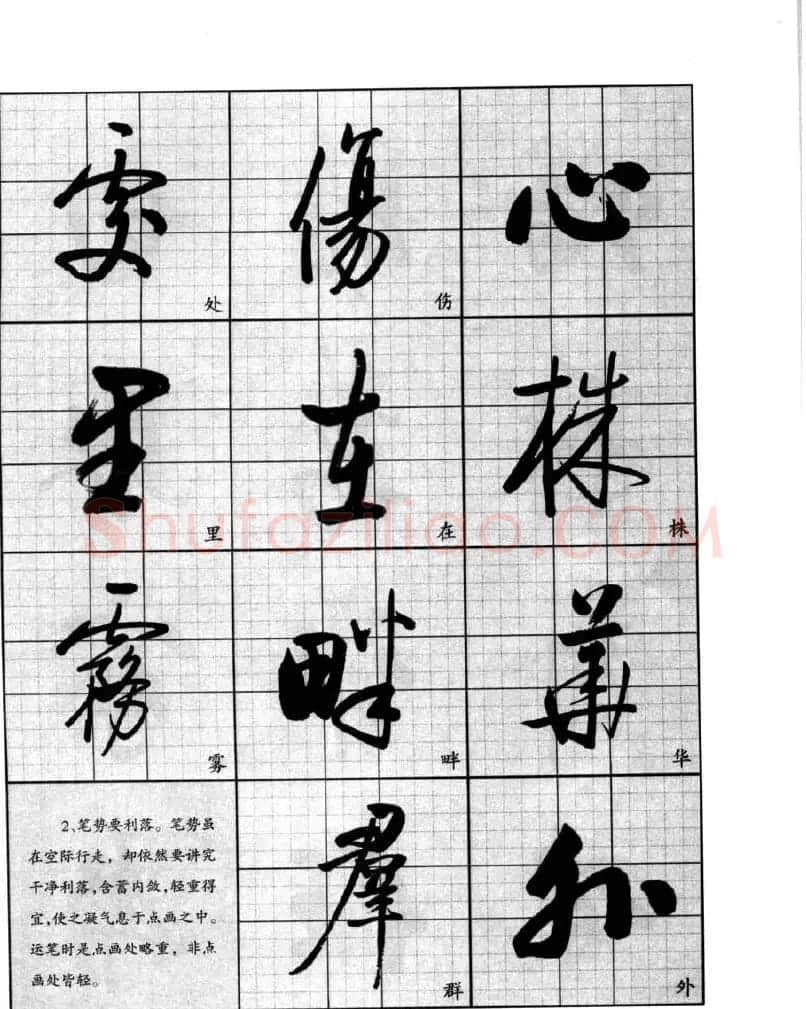 處 傷 心
处 伤
里 在 株
里 在 株
霧 畔 華
雾 畔 华
群 外
群 外
2、笔势要利落。笔势虽
在空际行走，却依然要讲究
干净利落，含蓄内敛，轻重得
宜，使之凝气息于点画之中。
运笔时是点画处略重，非点
画处皆轻。
Shufaziliao.COM